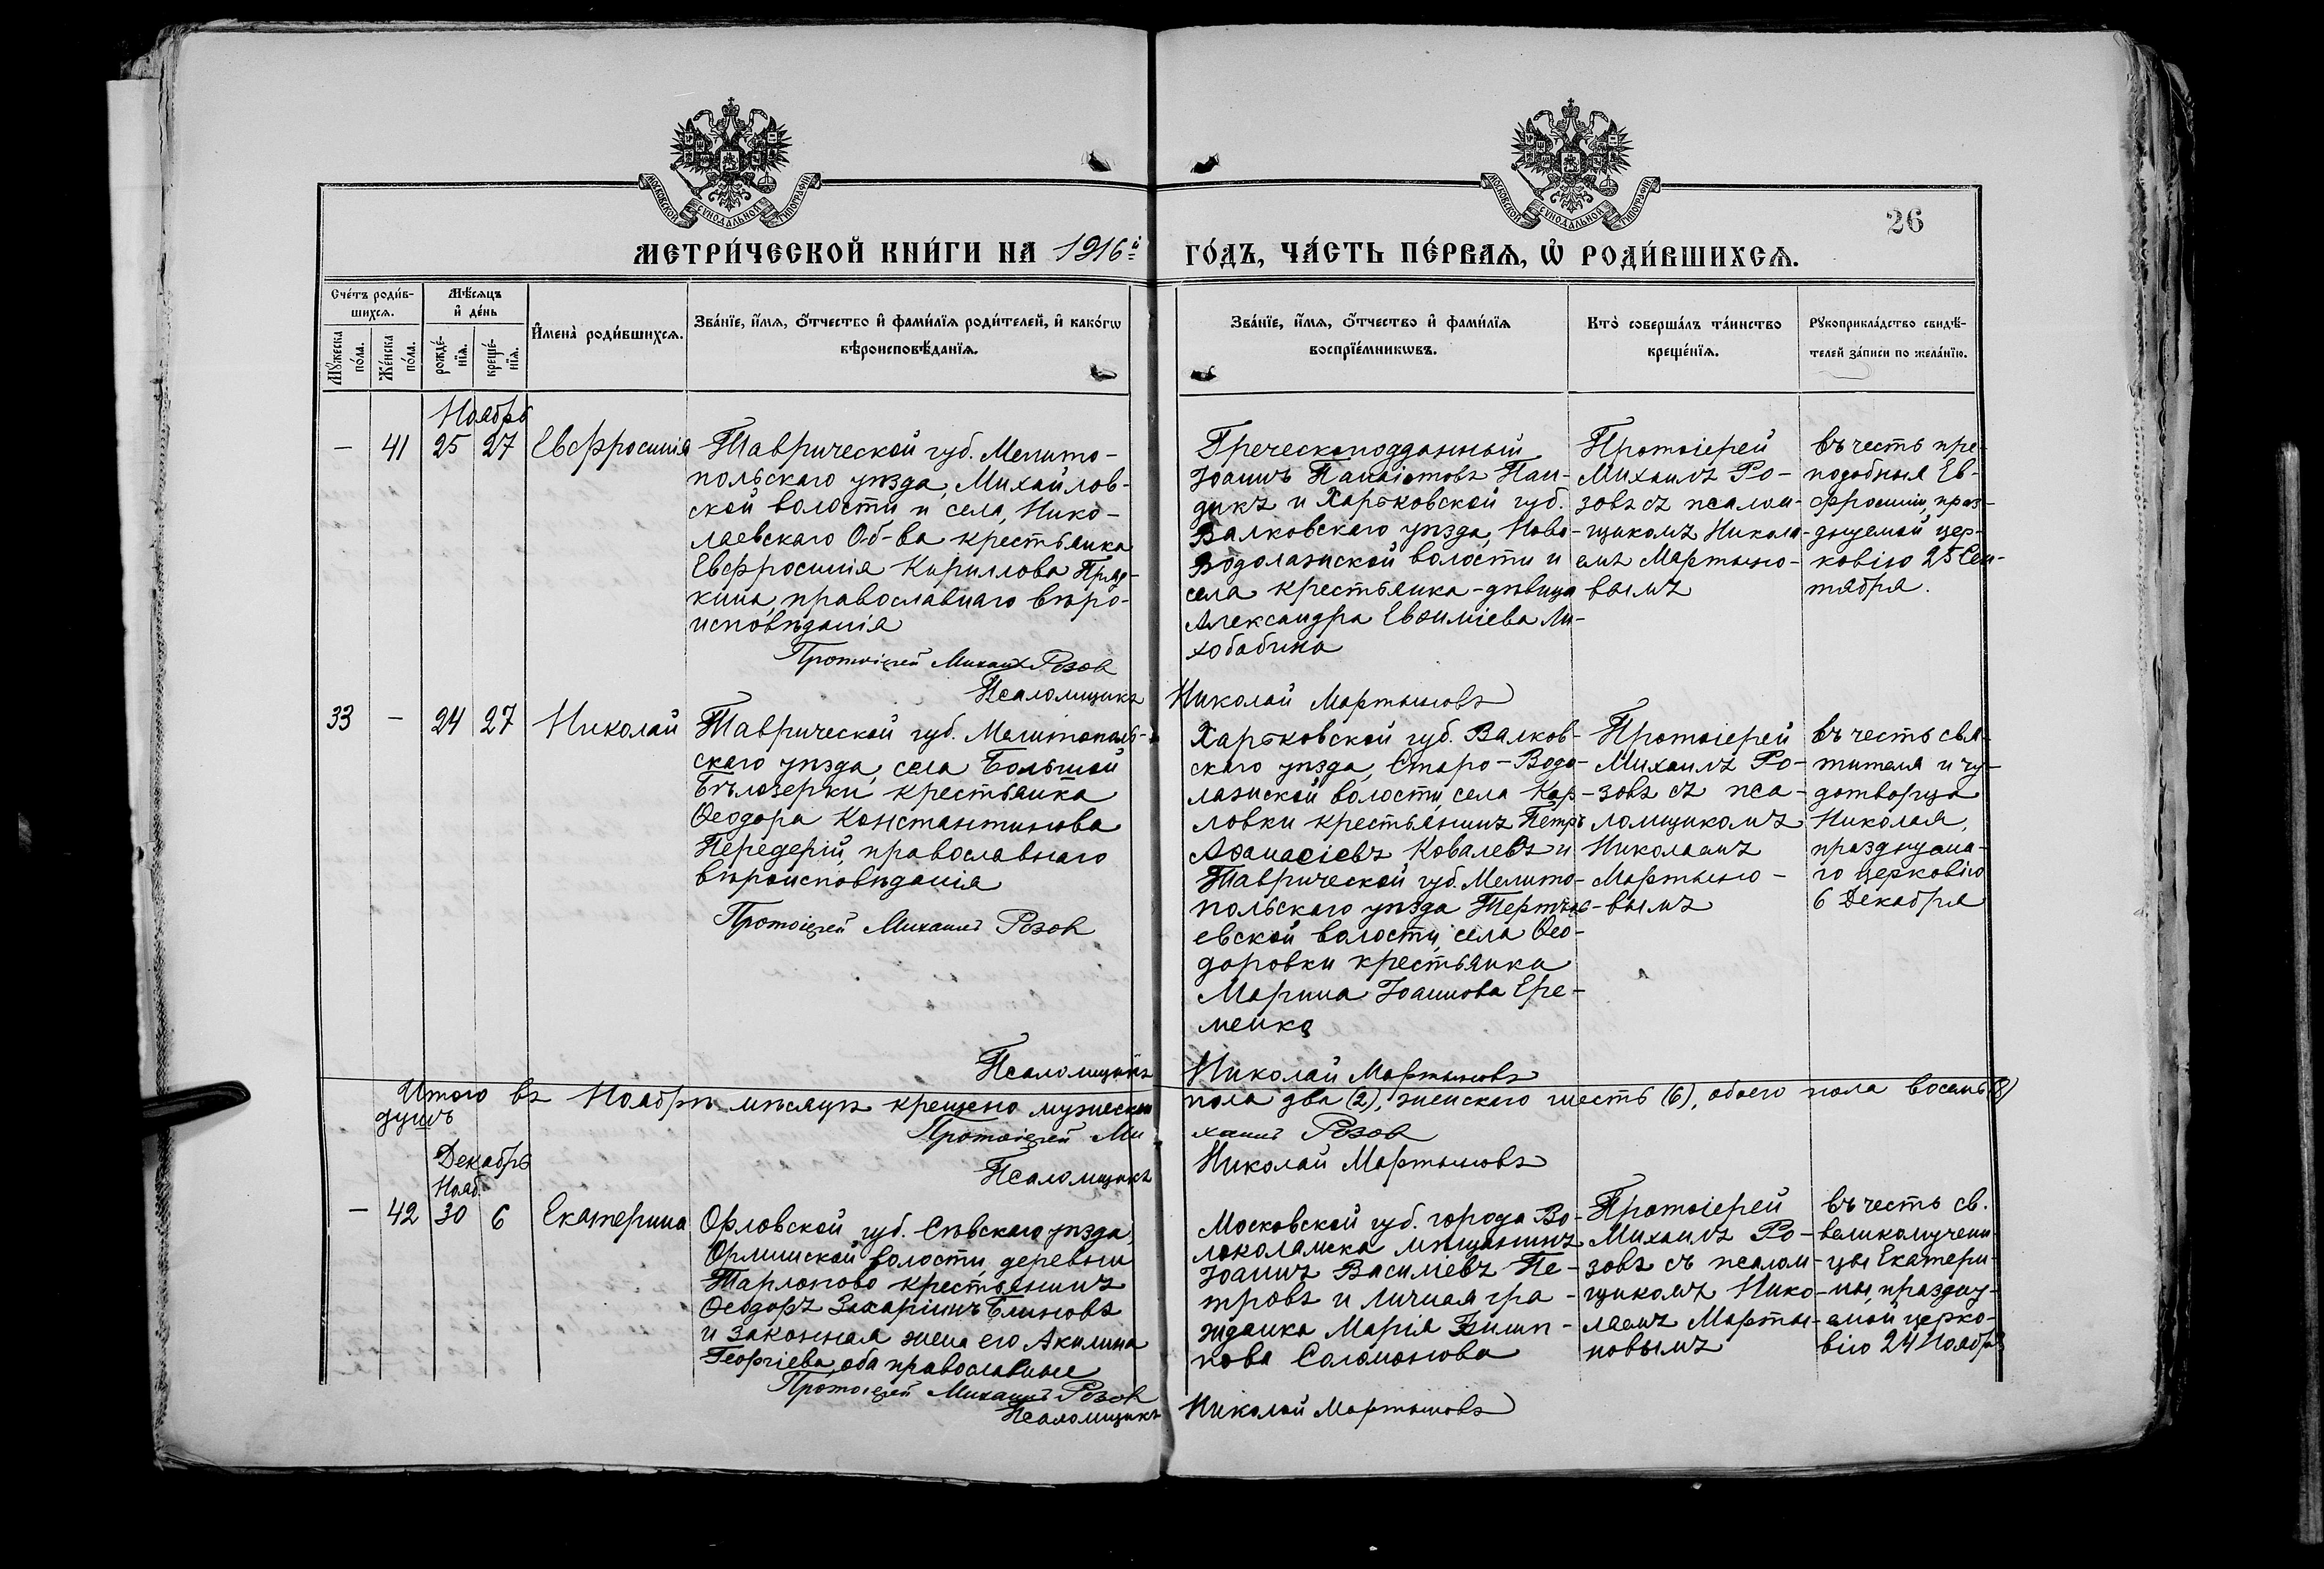 МОСКОВСКОЙ СѴНОДАЛЬНОЙ ТИПОГРАФІИ
МОСКОВСКОЙ СѴНОДАЛЬНОЙ ТИПОГРАФІИ
26
МЕТРИ́ЧЕСКОЙ КНИ́ГИ НА 1916й
ГО́ДЪ, ЧА́СТЬ ПЕ́РВАѦ, Ѡ҆ РОДИ́ВШИХСѦ.
Сче́тъ роди́в-
шихсѧ.
Мꙋ́жеска
по́ла.
Же́нска
по́ла.
Мѣ́сѧцъ
и҆ де́нь
рожде́-
нїѧ.
креще́-
нїѧ.
И҆мена̀ роди́вшихсѧ.
Зва́нїе, и҆́мѧ, ѻ҆́тчество и҆ фами́лїѧ роди́телей, и҆ како́гѡ
вѣроисповѣ́данїѧ.
Зва́нїе, и҆́мѧ, ѻ҆́тчество и҆ фами́лїѧ
воспрїе́мникѡвъ.
Кто̀ соверша́лъ та́инство
креще́нїѧ.
Рꙋкоприкла́дство свидѣ́-
телей за́писи по жела́нїю.
Ноябрь
— 41 25 27 Евфросинія
Таврической губ. Мелито-
польскаго уѣзда, Михайлов-
ской волости и села, Нико-
лаевскаго Об-ва крестьянка
Евфросинія Кириллова
кина, православнаго вѣро-
исповѣданія
Протоіерей Михаил Розов
Псаломщикъ
Греческоподданный
Іоаннъ Панаіотовъ Пан-
дикъ и Харьковской губ.
Валковскаго уѣзда, Ново-
Водолажской волости и
села крестьянка-дѣвица
Александра Евѳиміева Ли-
хобабина
Николай Мартыновъ
Протоіерей
Михаилъ Ро-
зовъ съ псалом-
щикомъ Никола-
емъ Мартыно-
вымъ
въ честь пре-
подобныя Ев-
фросиніи, праз-
днуемой цер-
ковію 25 Сен-
тября.
33 — 24 27 Николай
Таврической губ. Мелитополь-
скаго уѣзда, села Большой
Бѣлозерки крестьянка
Ѳеодора Константинова
Передерій, православнаго
вѣроисповѣданія
Протоіерей Михаил Розов
Псаломщикъ
Харьковской губ. Валков-
скаго уѣзда, Старо-Водо-
лажской волости, села Кар-
ловки крестьянинъ Петръ
Аѳанасіевъ Ковалевъ и
Таврической губ. Мелито-
польскаго уѣзда
евской волости, села Ѳео-
доровки крестьянка
Марина Іоаннова Ере-
менко
Николай Мартыновъ
Протоіерей
Михаилъ Ро-
зовъ съ пса-
ломщикомъ
Николаемъ
Мартыно-
вымъ
въ честь свя-
тителя и чу-
дотворца
Николая,
празднуема-
го церковію
6 Декабря
Итого въ Ноябрѣ мѣсяцѣ крещено мужескаго
пола два (2), женскаго шесть (6), обоего пола восемь (8)
душъ
Протоіерей Ми-
хаил Розов
Псаломщикъ
Николай Мартыновъ
Декабрь
Нояб.
— 42 30 6 Екатерина
Орловской губ. Сѣвскаго уѣзда,
волости, деревни
крестьянинъ
Ѳеодоръ Захаріинъ Блиновъ
и законная жена его Акилина
Георгіева, оба православные
Протоіерей Михаил Розов
Псаломщикъ
Московской губ. города Во-
локоламска мѣщанинъ
Іоаннъ Василіевъ Пе-
тровъ и личная гра-
жданка Марія Филип-
пова Соломонова
Николай Мартыновъ
Протоіерей
Михаилъ Ро-
зовъ съ псалом-
щикомъ Нико-
лаемъ Марты-
новымъ
въ честь св.
великомучени-
цы Екатери-
ны, праздну-
емой церко-
вію 24 Ноября